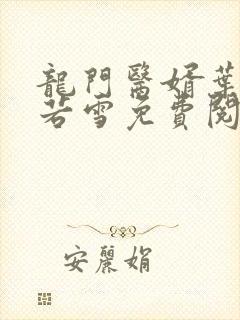 龍門醫婿葉
若雪免費閱
安麗娟